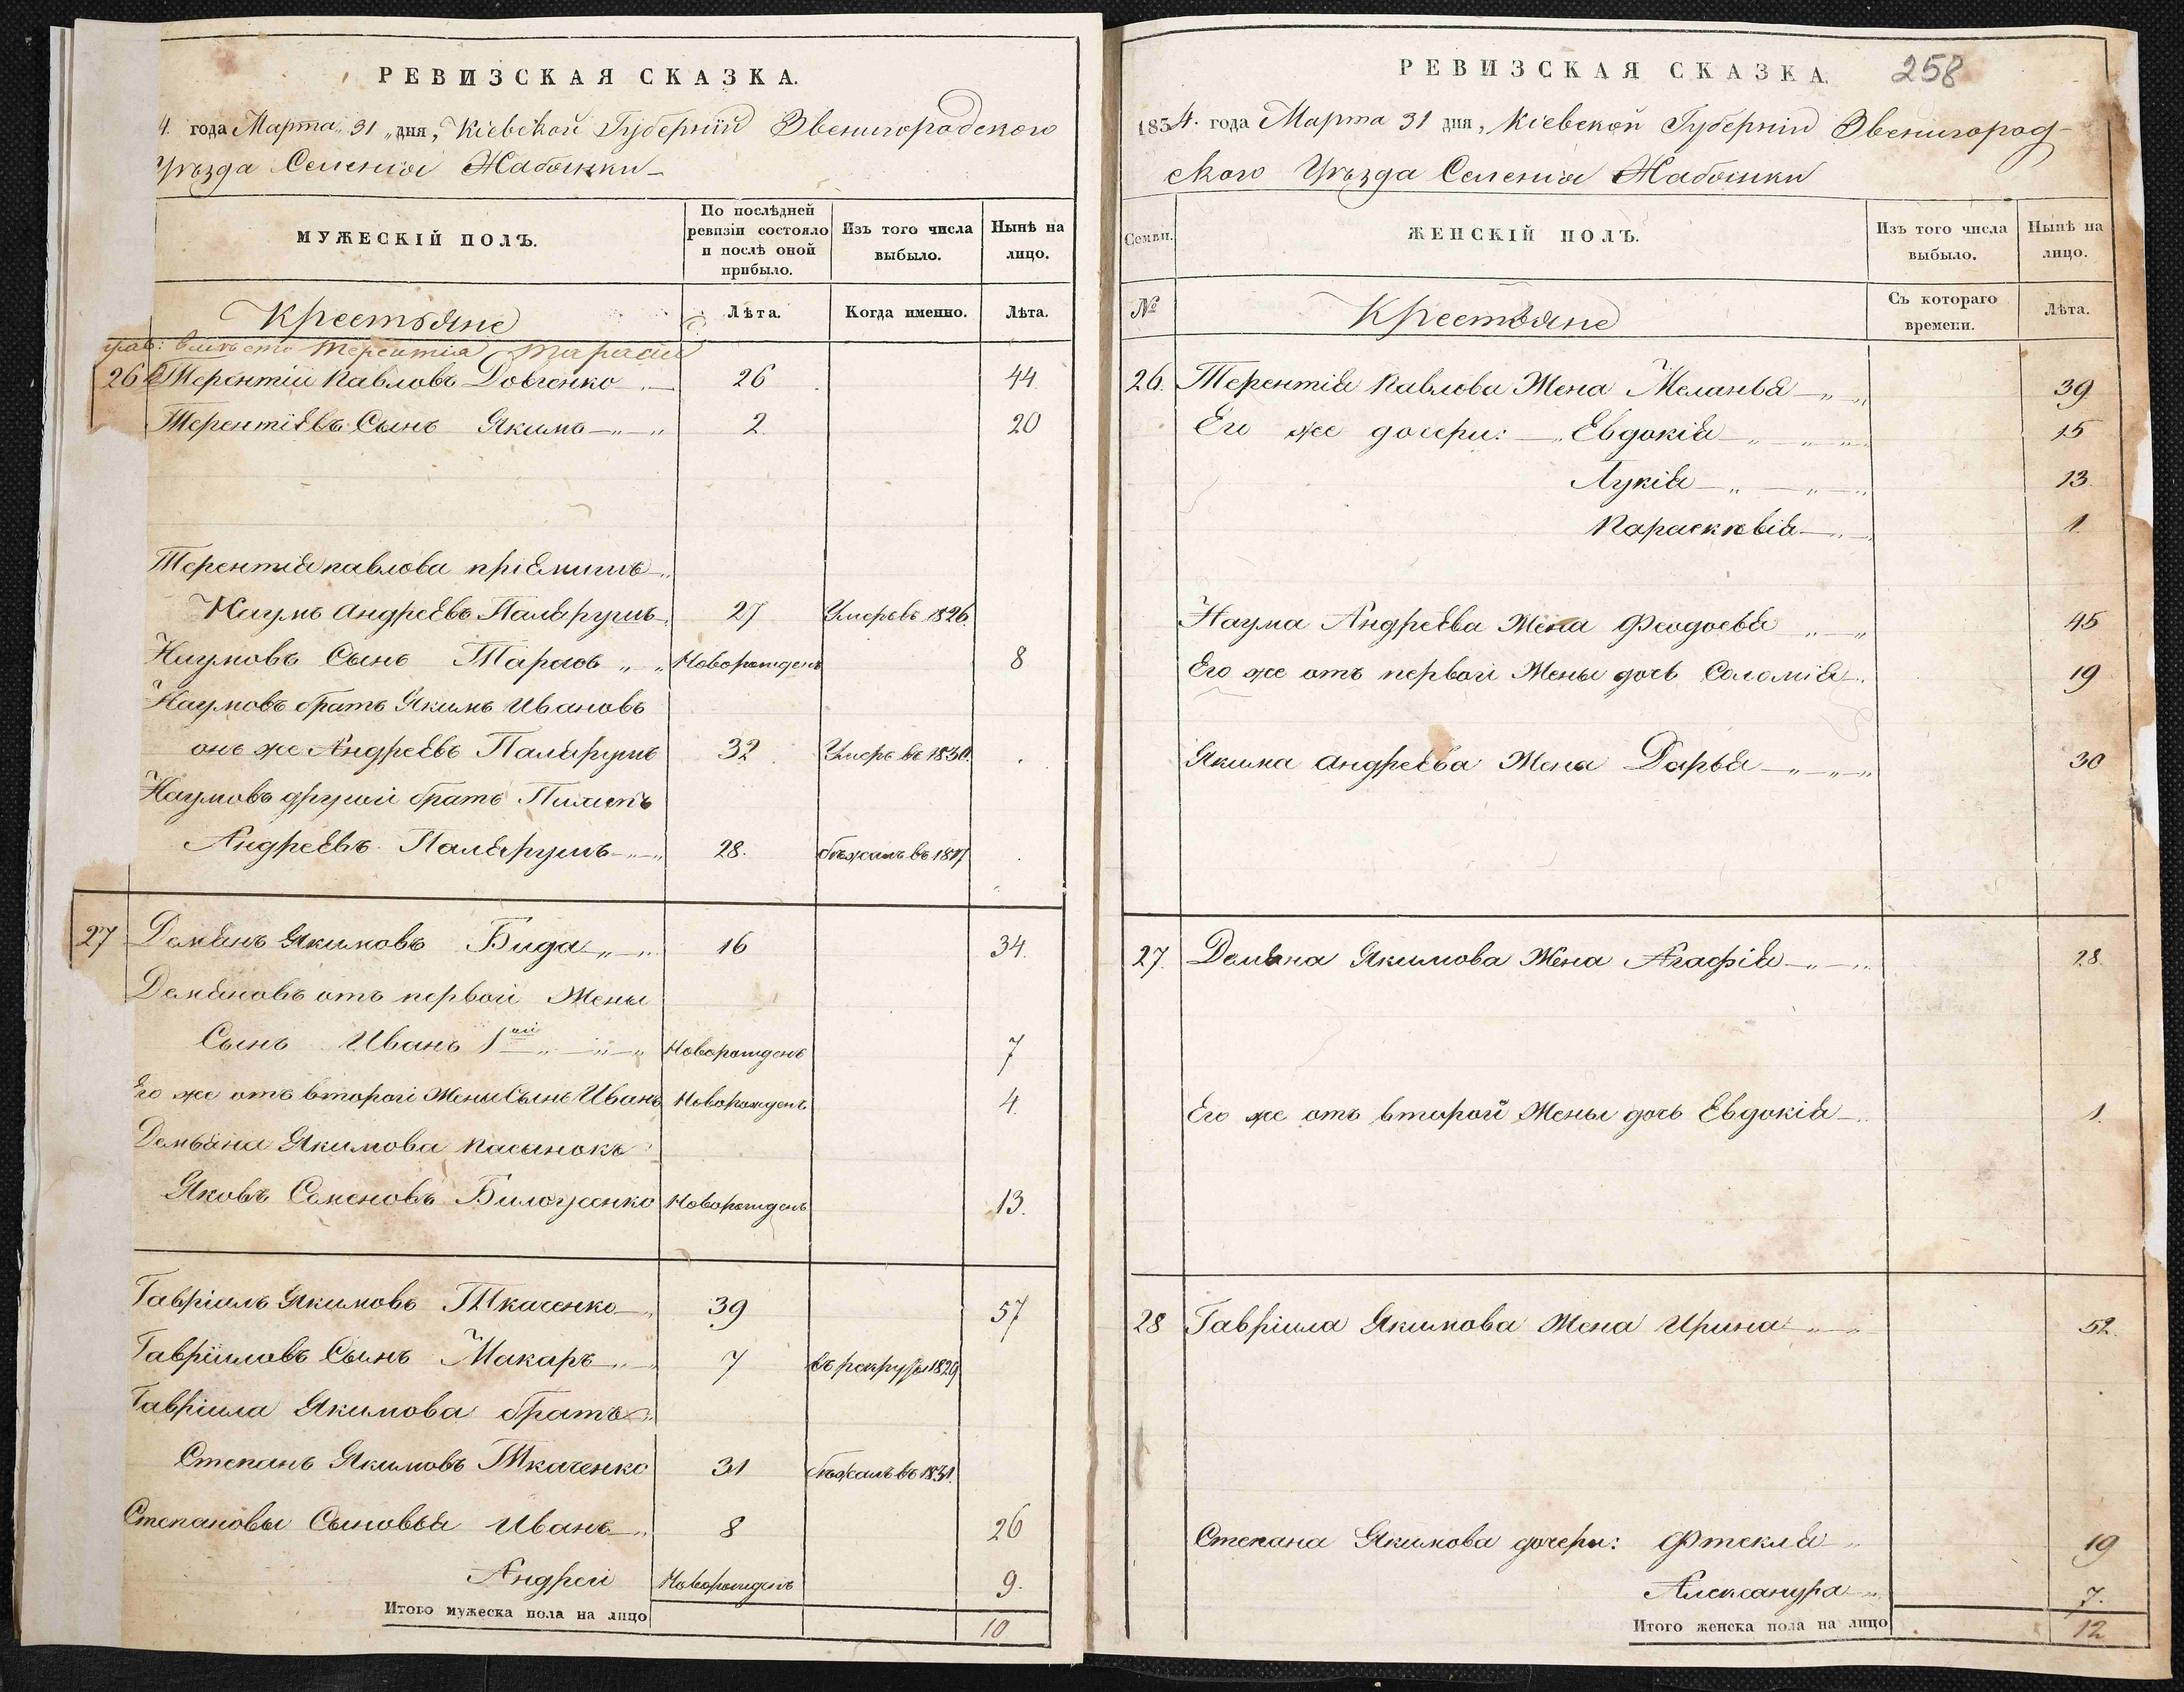 РЕВИЗСКАЯ СКАЗКА.
4. года Марта 31 дня, Кіевской Губерніи Звенигородского
Уѣзда Селенія Жабоинки
МУЖЕСКІЙ ПОЛЪ.
По послѣдней ревизіи состояло и послѣ оной прибыло.
Изъ того числа выбыло.
Нынѣ на лицо.
Крестьяне
Лѣта.
Когда именно.
Лѣта.
вмѣсто Терентія Тарасій
26 Терентій Павловъ Довгенко 26 44
Терентіевъ Сынъ Якимъ 2. 20
Терентія павлова пріемышъ
Наумъ Андреевъ Паларушъ 27 Умеръ въ 1826.
Наумовъ Сынъ Тарасъ Новорожденъ 8
Наумовъ братъ Якимъ Ивановъ
онъ же Андреевъ Паларушъ 32 Умеръ въ 1830.
Наумовъ другой братъ Пилипъ
Андреевъ Паларушъ 28. бѣжалъ въ 1817
27 Демьянъ Якимовъ Бида 16 34.
Демьяновъ отъ первой Жены
Сынъ Иванъ 1ый Новорожденъ 7
Его же отъ второй Жены Сынъ Иванъ Новорожденъ 4.
Демьяна Якимова пасынокъ
Яковъ Семеновъ Новорожденъ 13.
Гавріилъ Якимовъ Ткаченко 39 57
Гавріиловъ Сынъ Макаръ 7 въ рекруты 1829
Гавріила Якимова братъ
Степанъ Якимовъ Ткаченко 31 бѣжалъ въ 1831.
Степановы Сыновья Иванъ 8 26
Андрей Новорожденъ 9.
Итого мужеска пола на лицо 10
РЕВИЗСКАЯ СКАЗКА. 258
1834. года Марта 31 дня, Кіевской Губерніи Звенигород-
ского Уѣзда Селенія Жабоинки
Семьи.
ЖЕНСКІЙ ПОЛЪ.
Изъ того числа выбыло.
Нынѣ на лицо.
№
Крестьяне
Съ котораго времени.
Лѣта.
26. Терентія Павлова Жена Меланья 39
Его же дочери: Евдокія 15
Лукія 13.
Параскевія 1.
Наума Андреева Жена Феодосья 45
Его же отъ первой Жены дочь Соломія 19
Якима Андреева Жена Дарья 30
27. Демьяна Якимова Жена Агафія 28.
Его же отъ второй Жены дочь Евдокія 1.
28 Гавріила Якимова Жена Ирина 52.
Степана Якимова дочери: Фтекля 19
Александра 7.
Итого женска пола на лицо 12